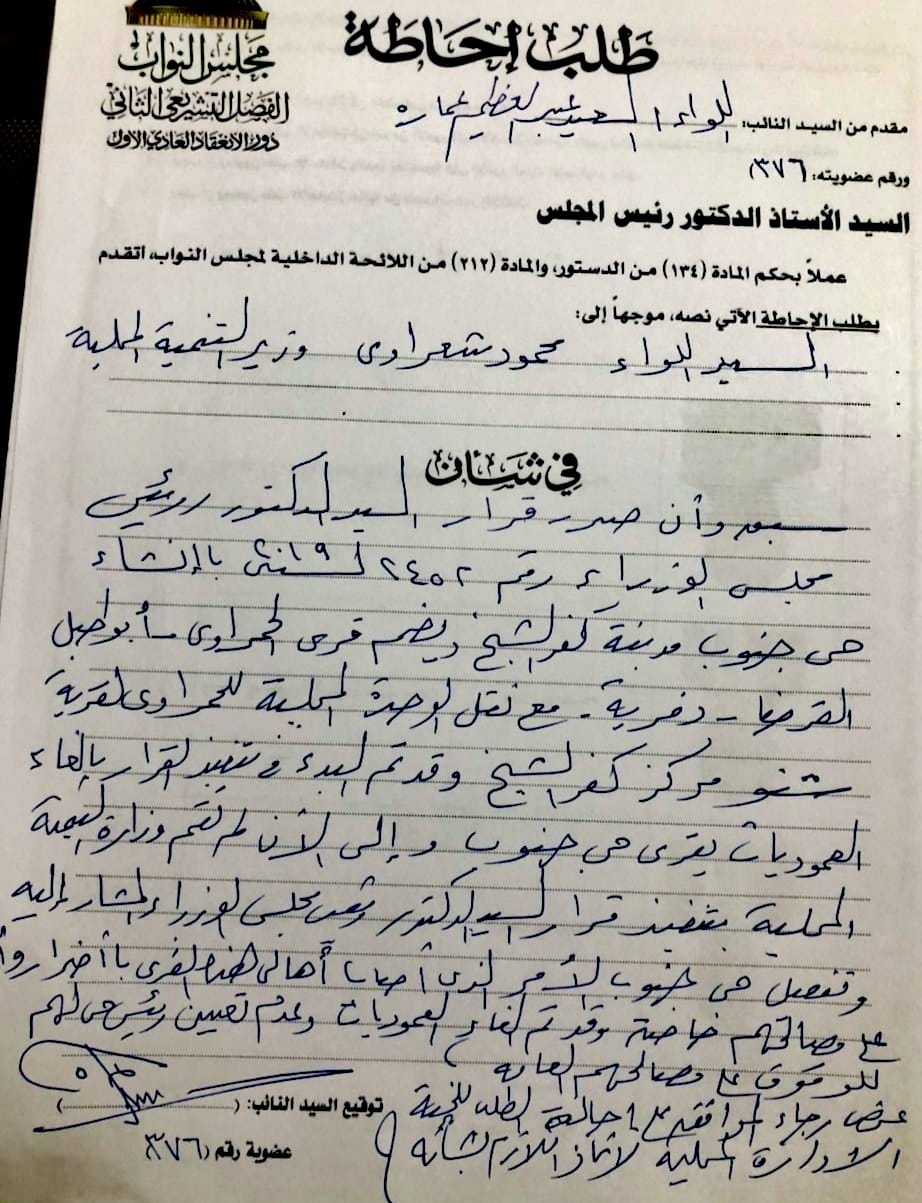 طلب إحاطة
مجلس النواب
الفصل التشريعي الثاني
دور الانعقاد العادي الأول
مقدم من السيد النائب: اللواء السيد عبد العظيم عماره
ورقم عضويته: (٣٧٦)
السيد الأستاذ الدكتور رئيس المجلس
عملاً بحكم المادة (١٣٤) من الدستور، والمادة (٢١٢) من اللائحة الداخلية لمجلس النواب، اتقدم
بطلب الإحاطة الآتي نصه، موجهاً إلى:
السيد اللواء محمود شعراوى وزير التنمية المحلية
في شأن
سبق وأن صدر قرار السيد الدكتور رئيس
مجلس الوزراء رقم ٢٤٥٢ لسنة ٢٠١٩ بإنشاء
حى جنوب مدينة كفر الشيخ ويضم قرى الحمراوى
القرضا - دفرية - مع نقل الوحدة المحلية للحمراوى لقرية
شنو مركز كفر الشيخ وقد تم البدء فى تنفيذ القرار بإلغاء
العموديات بقرى حى جنوب وإلى الآن لم تقم وزارة التنمية
المحلية بتنفيذ قرار السيد الدكتور رئيس مجلس الوزراء المشار إليه
وتفعيل حى جنوب الأمر الذى أصاب أهالى هذه القرى بأضرار
على مصالحهم خاصة وقد تم إلغاء العموديات وعدم تعيين رئيس حى لهم
للوقوف على مصالحهم العامه
رجاء الموافقه على إحالة الطلب للجنة
الادارة المحلية لاتخاذ اللازم بشأنه
توقيع السيد النائب: ( )
عضوية رقم (٣٧٦)